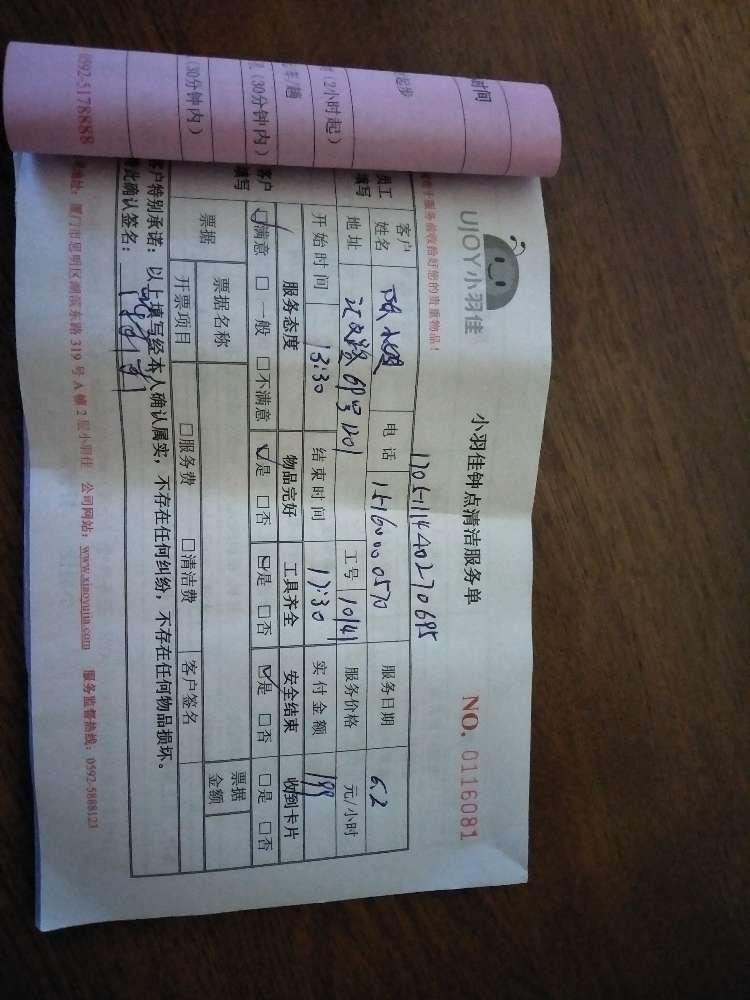 时间
起步
(2小时起)
车/趟
(30分钟内)
(30分钟内)
0592-5178888
UJOY小羽佳
小羽佳钟点清洁服务单
NO. 0116081
服务前收拾好您的贵重物品!
1705111440270695
员工
填写
客户
姓名
电话
15160000570
服务日期
6.2
地址
601号1201
工号
10141
服务价格
元/小时
开始时间
13:30
结束时间
17:30
实付金额
199
客户
填写
服务态度
物品完好
工具齐全
安全结束
收到卡片
☑满意 □一般 □不满意
☑是 □否
☑是 □否
☑是 □否
□是 □否
票据
票据名称
票据
金额
开票项目
□服务费 □清洁费
客户签名
客户特别承诺:以上填写经本人确认属实,不存在任何纠纷,不存在任何物品损坏。
此确认签名:
地址:厦门市思明区湖滨东路 319 号 A 幢 2 层小羽佳 公司网站:www.xiaoyujia.com 服务监督热线:0592-5888123